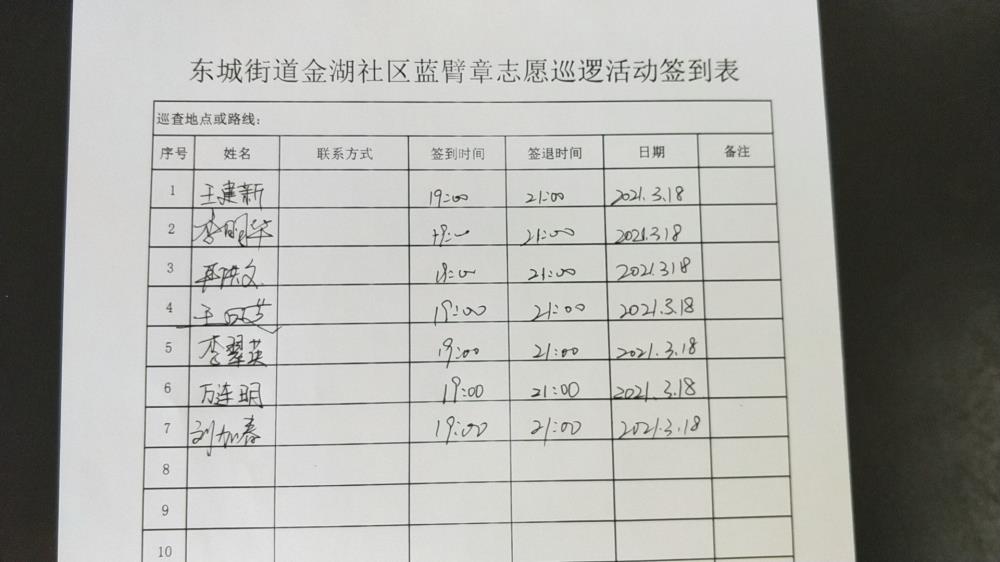 东城街道金湖社区蓝臂章志愿巡逻活动签到表
巡查地点或路线：
序号 姓名 联系方式 签到时间 签退时间 日期 备注
1 王建新 19:00 21:00 2021.3.18
2 李明华 19:00 21:00 2021.3.18
3 19:00 21:00 2021.3.18
4 19:00 21:00 2021.3.18
5 李翠英 19:00 21:00 2021.3.18
6 万连明 19:00 21:00 2021.3.18
7 刘加春 19:00 21:00 2021.3.18
8
9
10